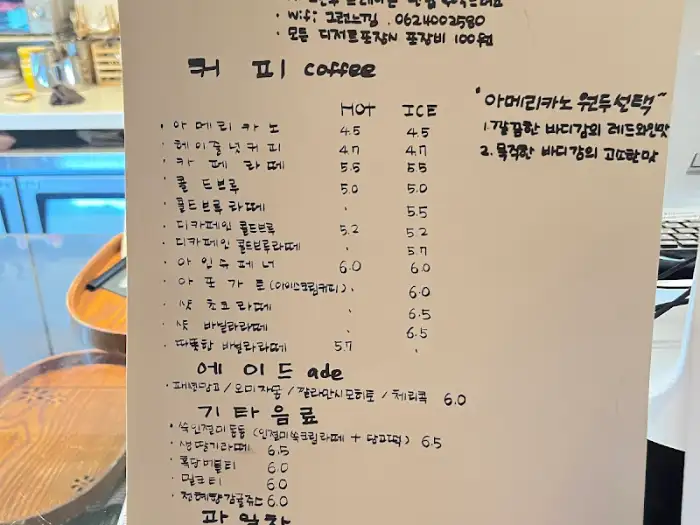 · Wifi 그런느낌 . 0624002580
· 모든 디저트포장시 포장비 100원
커 피 coffee
HOT ICE
· 아 메 리 카 노 4.5 4.5
· 헤이즐넛커피 4.7 4.7
· 카 페 라 떼 5.5 5.5
· 콜 드브루 5.0 5.0
· 콜드브루라떼 · 5.5
· 디카페인 콜드브루 5.2 5.2
· 디카페인 콜드브루라떼 · 5.7
· 아 인 슈 페 너 6.0 6.0
· 아 포 가 토 (아이스크림커피) · 6.0
· 샷 초코 라떼 · 6.5
· 샷 바닐라라떼 · 6.5
· 따뜻한 바닐라라떼 5.7 ·
"아메리카노 원두선택"
1. 깔끔한 바디감의 레드와인맛
2. 묵직한 바디감의 고소한맛
에 이 드 ade
· 패션망고 / 오미자몽 / 깔라만시모히또 / 체리콕 6.0
기 타 음 료
· 쑥인절미동동 (인절미쑥크림라떼 + 당고떡) 6.5
· 생딸기라떼 6.5
· 흑당버블티 6.0
· 밀크티 6.0
· 천혜향감귤쥬스 6.0
과 일 차